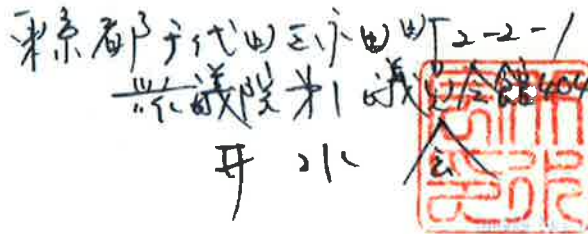 東京都千代田区永田町2-2-1
衆議院第1議員会館404
井水会